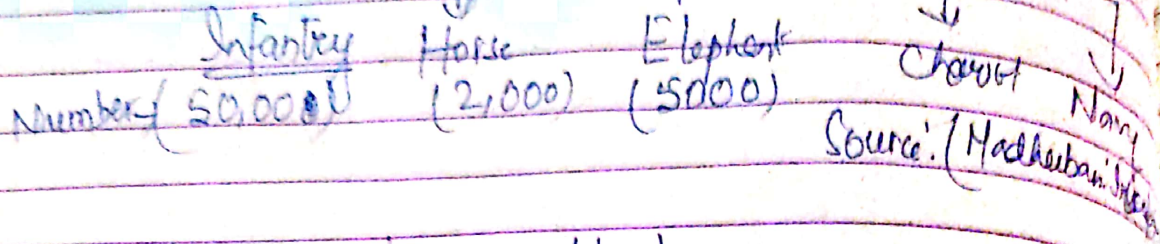 Infantry Horse Elephant Chariot Navy
Number (50,000) (2,000) (5000)
Source: (Madhuban